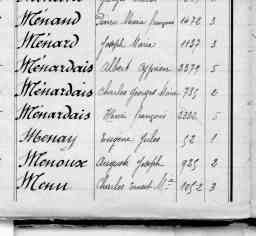 Ménand Pierre Marie François 1472 3
Ménard Joseph Marie 1137 3
Ménardais Albert Cyprien 2370 5
Ménardais Charles Georges Marie 735 2
Menardais Henri François 2322 5
Menay Eugène Jules 52 1
Menoux Auguste Joseph 925 2
Menu Charles Ernest M 1052 3